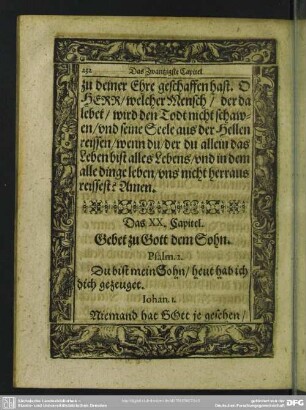 232 Das Zwantzigste Capitel.
zu deiner Ehre geschaffen hast. O
HERR/ welcher Mensch/ der da
lebet/ wird den Todt nicht schaw-
en/ vnd seine Seele aus der Hellen
reissen/ wenn du/ der du allein das
Leben bist alles Lebens/ vnd in dem
alle dinge leben/ vns nicht herraus
reissest? Amen.
Das XX. Capitel.
Gebet zu Gott dem Sohn.
Psalm. 2.
Du bist mein Sohn/ heut hab ich
dich gezeuget.
Iohan. 1.
Niemand hat GOtt je gesehen/